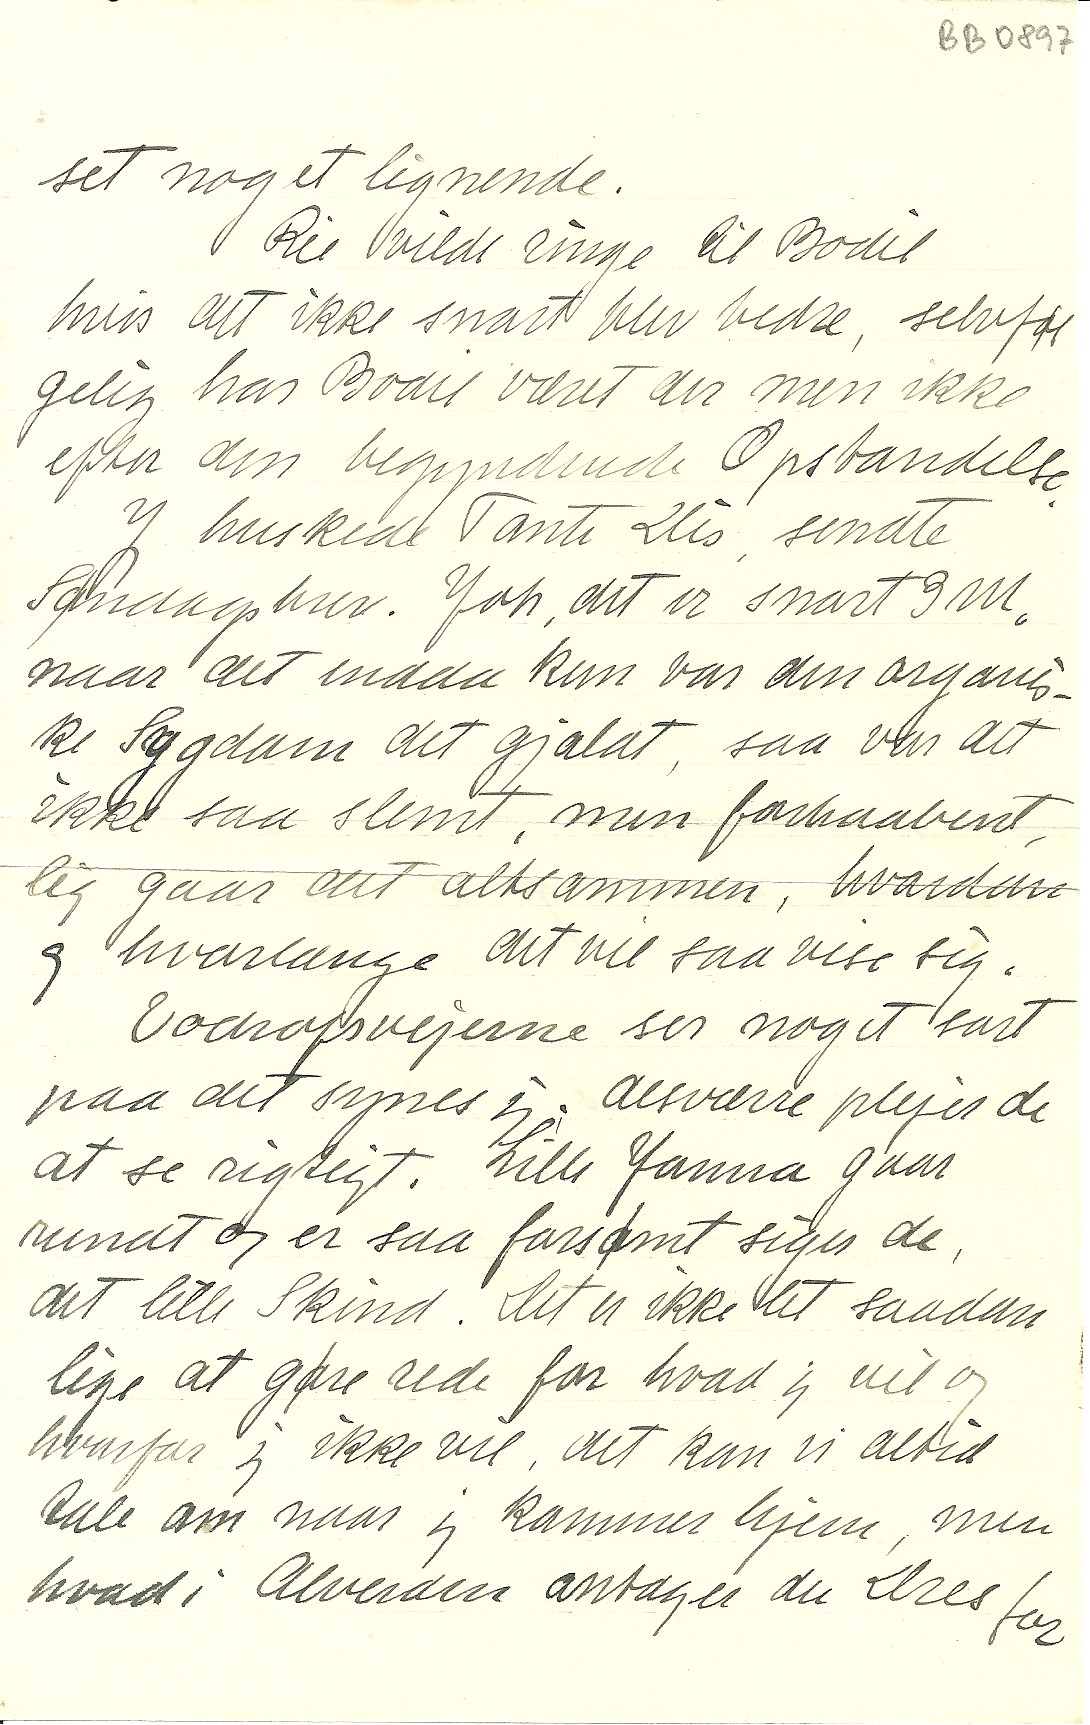 BB0897
set noget lignende.
Rie vilde ringe til Bodil
hvis det ikke snart blev bedre, selvføl
gelig har Bodil været der men ikke
efter den begyndende Opstandelse.
I huskede Tante Dis, sendte
Søndagsbrev. Joh, det er snart 9 M.
naar det endda kun var den organis-
ke Sygdom det gjaldt, saa var det
ikke saa slemt, men forhaabent,
lig gaar det altsammen, hvordan
og hvorlænge det vil saa vise sig.
Vodrofsvejerne ser noget sort
paa det synes jeg. desværre plejer de
at se rigtigt. Lille Janna gaar
rundt og er saa forsømt siger de,
det lille Skind. Det er ikke let saadan
lige at gøre rede for hvad jeg vil og
hvorfor jeg ikke vil, det kan vi altid
tale om naar jeg kommer hjem, men
hvad i Alverden antager du Dres for